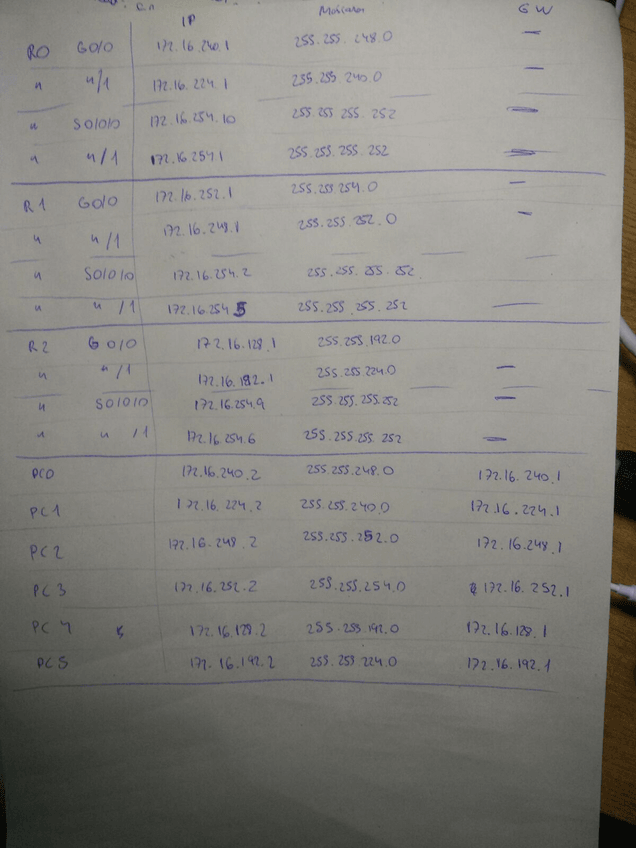 IP Máscara GW
R0 G0/0 172.16.240.1 255.255.248.0 —
" "/1 172.16.224.1 255.255.240.0 —
" S0/0/0 172.16.254.10 255.255.255.252 —
" "/1 172.16.254.1 255.255.255.252 —
R1 G0/0 172.16.252.1 255.255.254.0 —
" "/1 172.16.248.1 255.255.252.0 —
" S0/0/0 172.16.254.2 255.255.255.252
" "/1 172.16.254.5 255.255.255.252 —
R2 G0/0 172.16.128.1 255.255.192.0
" "/1 172.16.192.1 255.255.224.0 —
" S0/0/0 172.16.254.9 255.255.255.252 —
" "/1 172.16.254.6 255.255.255.252 —
PC0 172.16.240.2 255.255.248.0 172.16.240.1
PC1 172.16.224.2 255.255.240.0 172.16.224.1
PC2 172.16.248.2 255.255.252.0 172.16.248.1
PC3 172.16.252.2 255.255.254.0 172.16.252.1
PC4 172.16.128.2 255.255.192.0 172.16.128.1
PC5 172.16.192.2 255.255.224.0 172.16.192.1